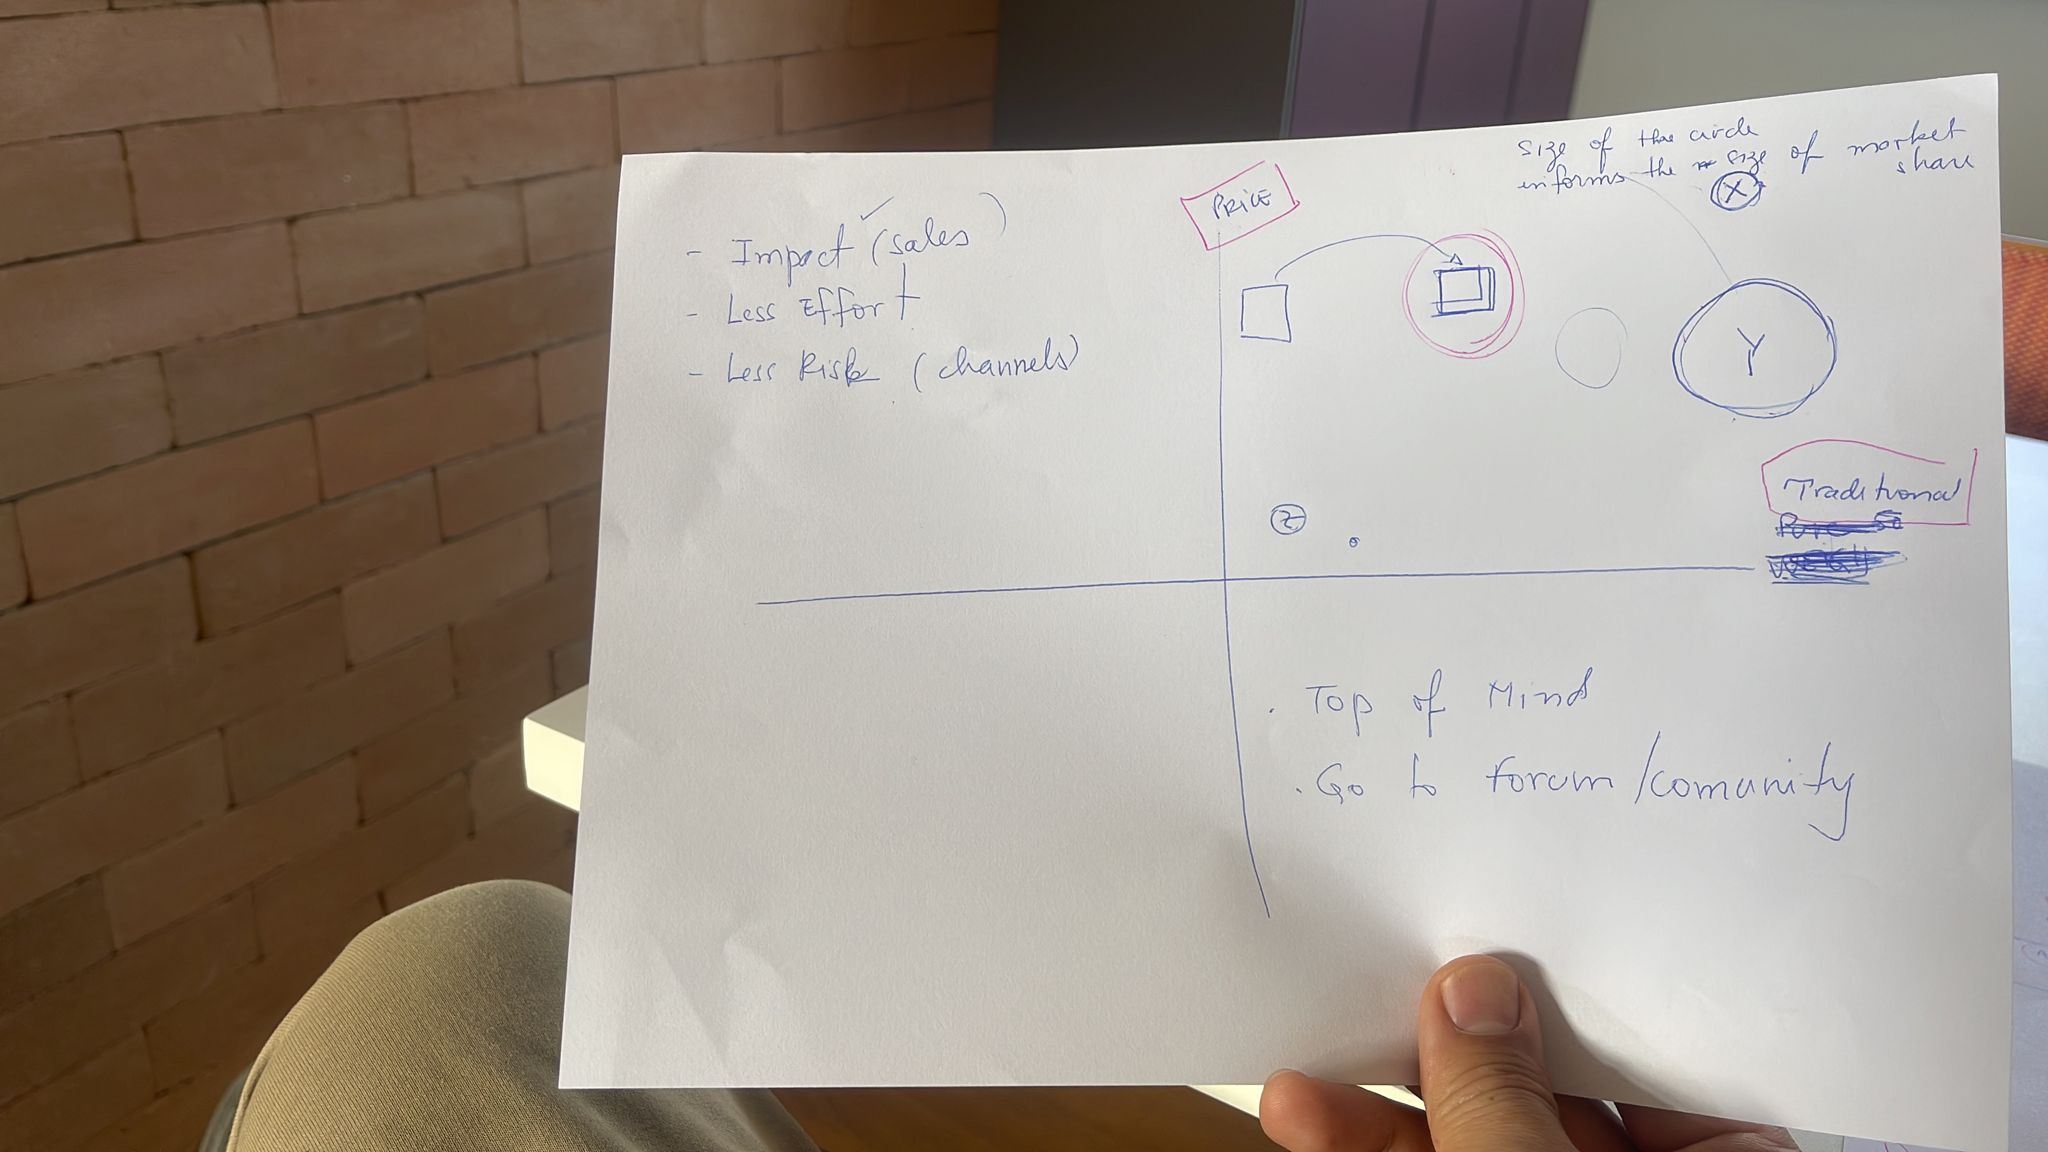 - Impact (sales)
- Less Effort
- Less Risk (channels)
PRICE
Size of the circle
informs the size of market
share
X
Y
Traditional
Z
. Top of Mind
. Go to forum/comunity